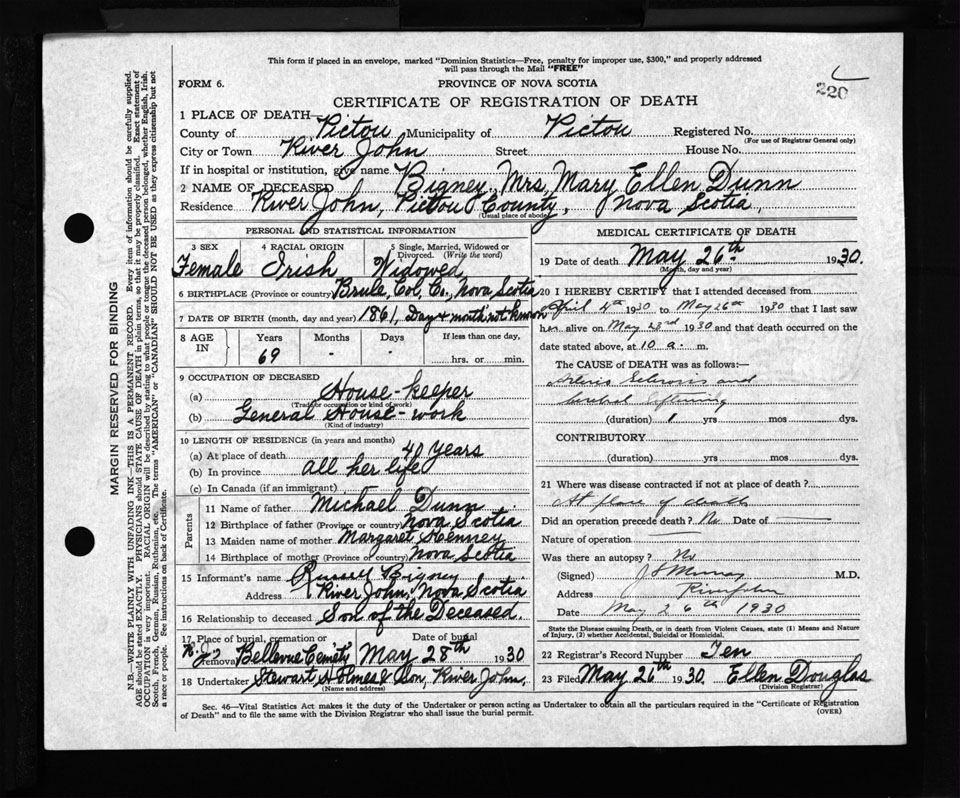 This form if placed in an envelope, marked "Dominion Statistics—Free, penalty for improper use, $300," and properly addressed
will pass through the Mail "FREE"
FORM 6.
PROVINCE OF NOVA SCOTIA
220
CERTIFICATE OF REGISTRATION OF DEATH
1 PLACE OF DEATH
County of Pictou Municipality of Pictou Registered No.
(For use of Registrar General only)
City or Town River John Street House No.
If in hospital or institution, give name
2 NAME OF DECEASED Bigney, Mrs, Mary Ellen Dunn
Residence River John, Pictou County, Nova Scotia,
(Usual place of abode)
PERSONAL AND STATISTICAL INFORMATION
3 SEX 4 RACIAL ORIGIN 5 Single, Married, Widowed or Divorced. (Write the word)
Female Irish Widowed
6 BIRTHPLACE (Province or country) Brule, Col, Co, Nova Scotia
7 DATE OF BIRTH (month, day and year) 1861, Day & month not known
8 AGE IN Years Months Days If less than one day,
69 - - hrs. or min.
9 OCCUPATION OF DECEASED
(a) House-keeper
(Trade or occupation or kind of work)
(b) General House-work
(Kind of industry)
10 LENGTH OF RESIDENCE (in years and months)
(a) At place of death 40 years
(b) In province all her life
(c) In Canada (if an immigrant)
Parents
11 Name of father Michael Dunn
12 Birthplace of father (Province or country) Nova Scotia
13 Maiden name of mother Margaret
14 Birthplace of mother (Province or country) Nova Scotia
15 Informant's name Russell Bigney
Address River John, Nova Scotia
16 Relationship to deceased Son of the Deceased.
17 Place of burial, cremation or removal Date of burial
Bellevue Cemisty May 28th 1930
18 Undertaker Stewart Holmes & Son, River John,
(Name and address)
MEDICAL CERTIFICATE OF DEATH
19 Date of death May 26th 1930.
(Month, day and year)
20 I HEREBY CERTIFY that I attended deceased from
April 4th 1930 to May 26th 1930 that I last saw
her alive on May 23rd 1930 and that death occurred on the
date stated above, at 10 a. m.
The CAUSE OF DEATH was as follows:—
Arterio Sclerosis and
cerebral softening
(duration) 1 yrs mos dys.
CONTRIBUTORY
(duration) yrs mos dys.
21 Where was disease contracted if not at place of death?
At place of death
Did an operation precede death? No Date of
Nature of operation
Was there an autopsy? No
(Signed) J S Murray M.D.
Address River John
Date May 26th 1930
State the Disease causing Death, or in death from Violent Causes, state (1) Means and Nature
of Injury, (2) whether Accidental, Suicidal or Homicidal.
22 Registrar's Record Number Ten
23 Filed May 26th 1930. Ellen Douglas
(Division Registrar)
Sec. 46—Vital Statistics Act makes it the duty of the Undertaker or person acting as Undertaker to obtain all the particulars required in the "Certificate of Registration
of Death" and to file the same with the Division Registrar who shall issue the burial permit.
(OVER)
MARGIN RESERVED FOR BINDING
N.B.—WRITE PLAINLY WITH UNFADING INK—THIS IS A PERMANENT RECORD. Every item of information should be carefully supplied.
AGE should be stated EXACTLY. PHYSICIANS should STATE CAUSE OF DEATH in plain terms, so that it may be properly classified. Exact statement of
OCCUPATION is very important. RACIAL ORIGIN will be described by stating to what people or tongue the deceased person belonged, whether English, Irish,
Scotch, French, German, Russian, Ruthenian, etc. The terms "AMERICAN" or "CANADIAN" SHOULD NOT BE USED as they express citizenship but not
a race or people. See instructions on back of Certificate.